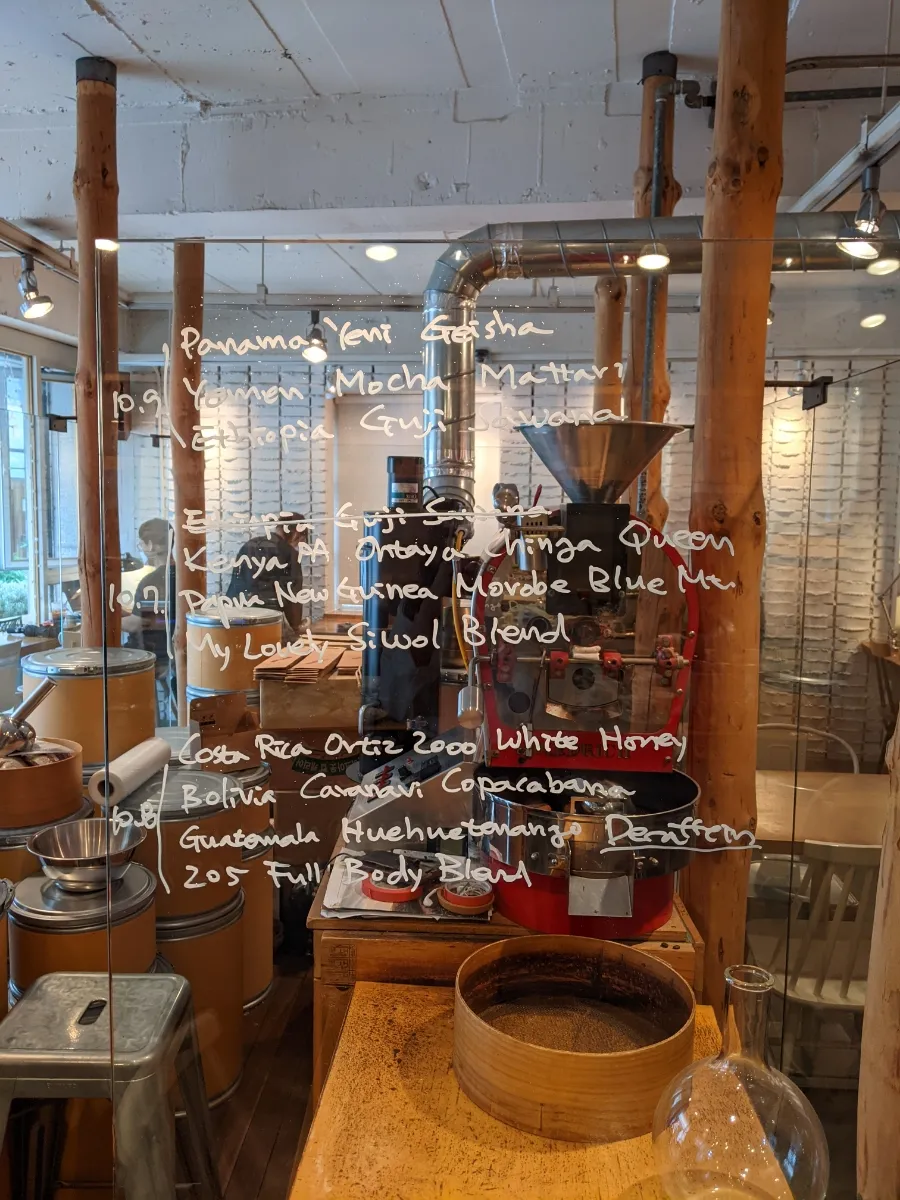 Panama Yeni Geisha
10.9. Yemen Mocha Mattari
Ethiopia Guji Sawana
Ethiopia Guji Sawana
Kenya AA Ontaya Chinga Queen
10.7. Papua New Guinea Morobe Blue Mtn
My Lovely Siwol Blend
Costa Rica Ortiz 2000 White Honey
Bolivia Caranavi Copacabana
Guatemala Huehuetenango Decaffein
205 Full Body Blend